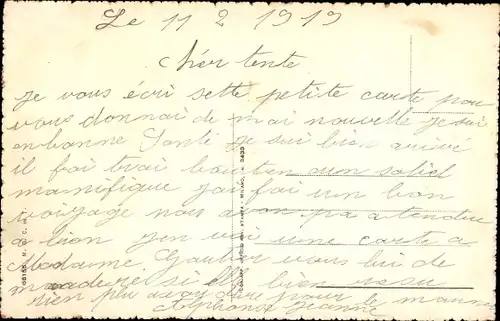 Le 11 2 1919
cher tente
Je vous écri sette petite carte pour
vous donnai de mai nouvelle je sui
en bonne Santé Je sui bien arrivé
il fai trai bau ten un soliel
manifique jai fai un bon
voiyage nous a pa atendue
a lion Jen voi une carte a
Madame Gautier vous lui de
manderé si elle bien
rien plu a pour le
Alphonse Jeanne